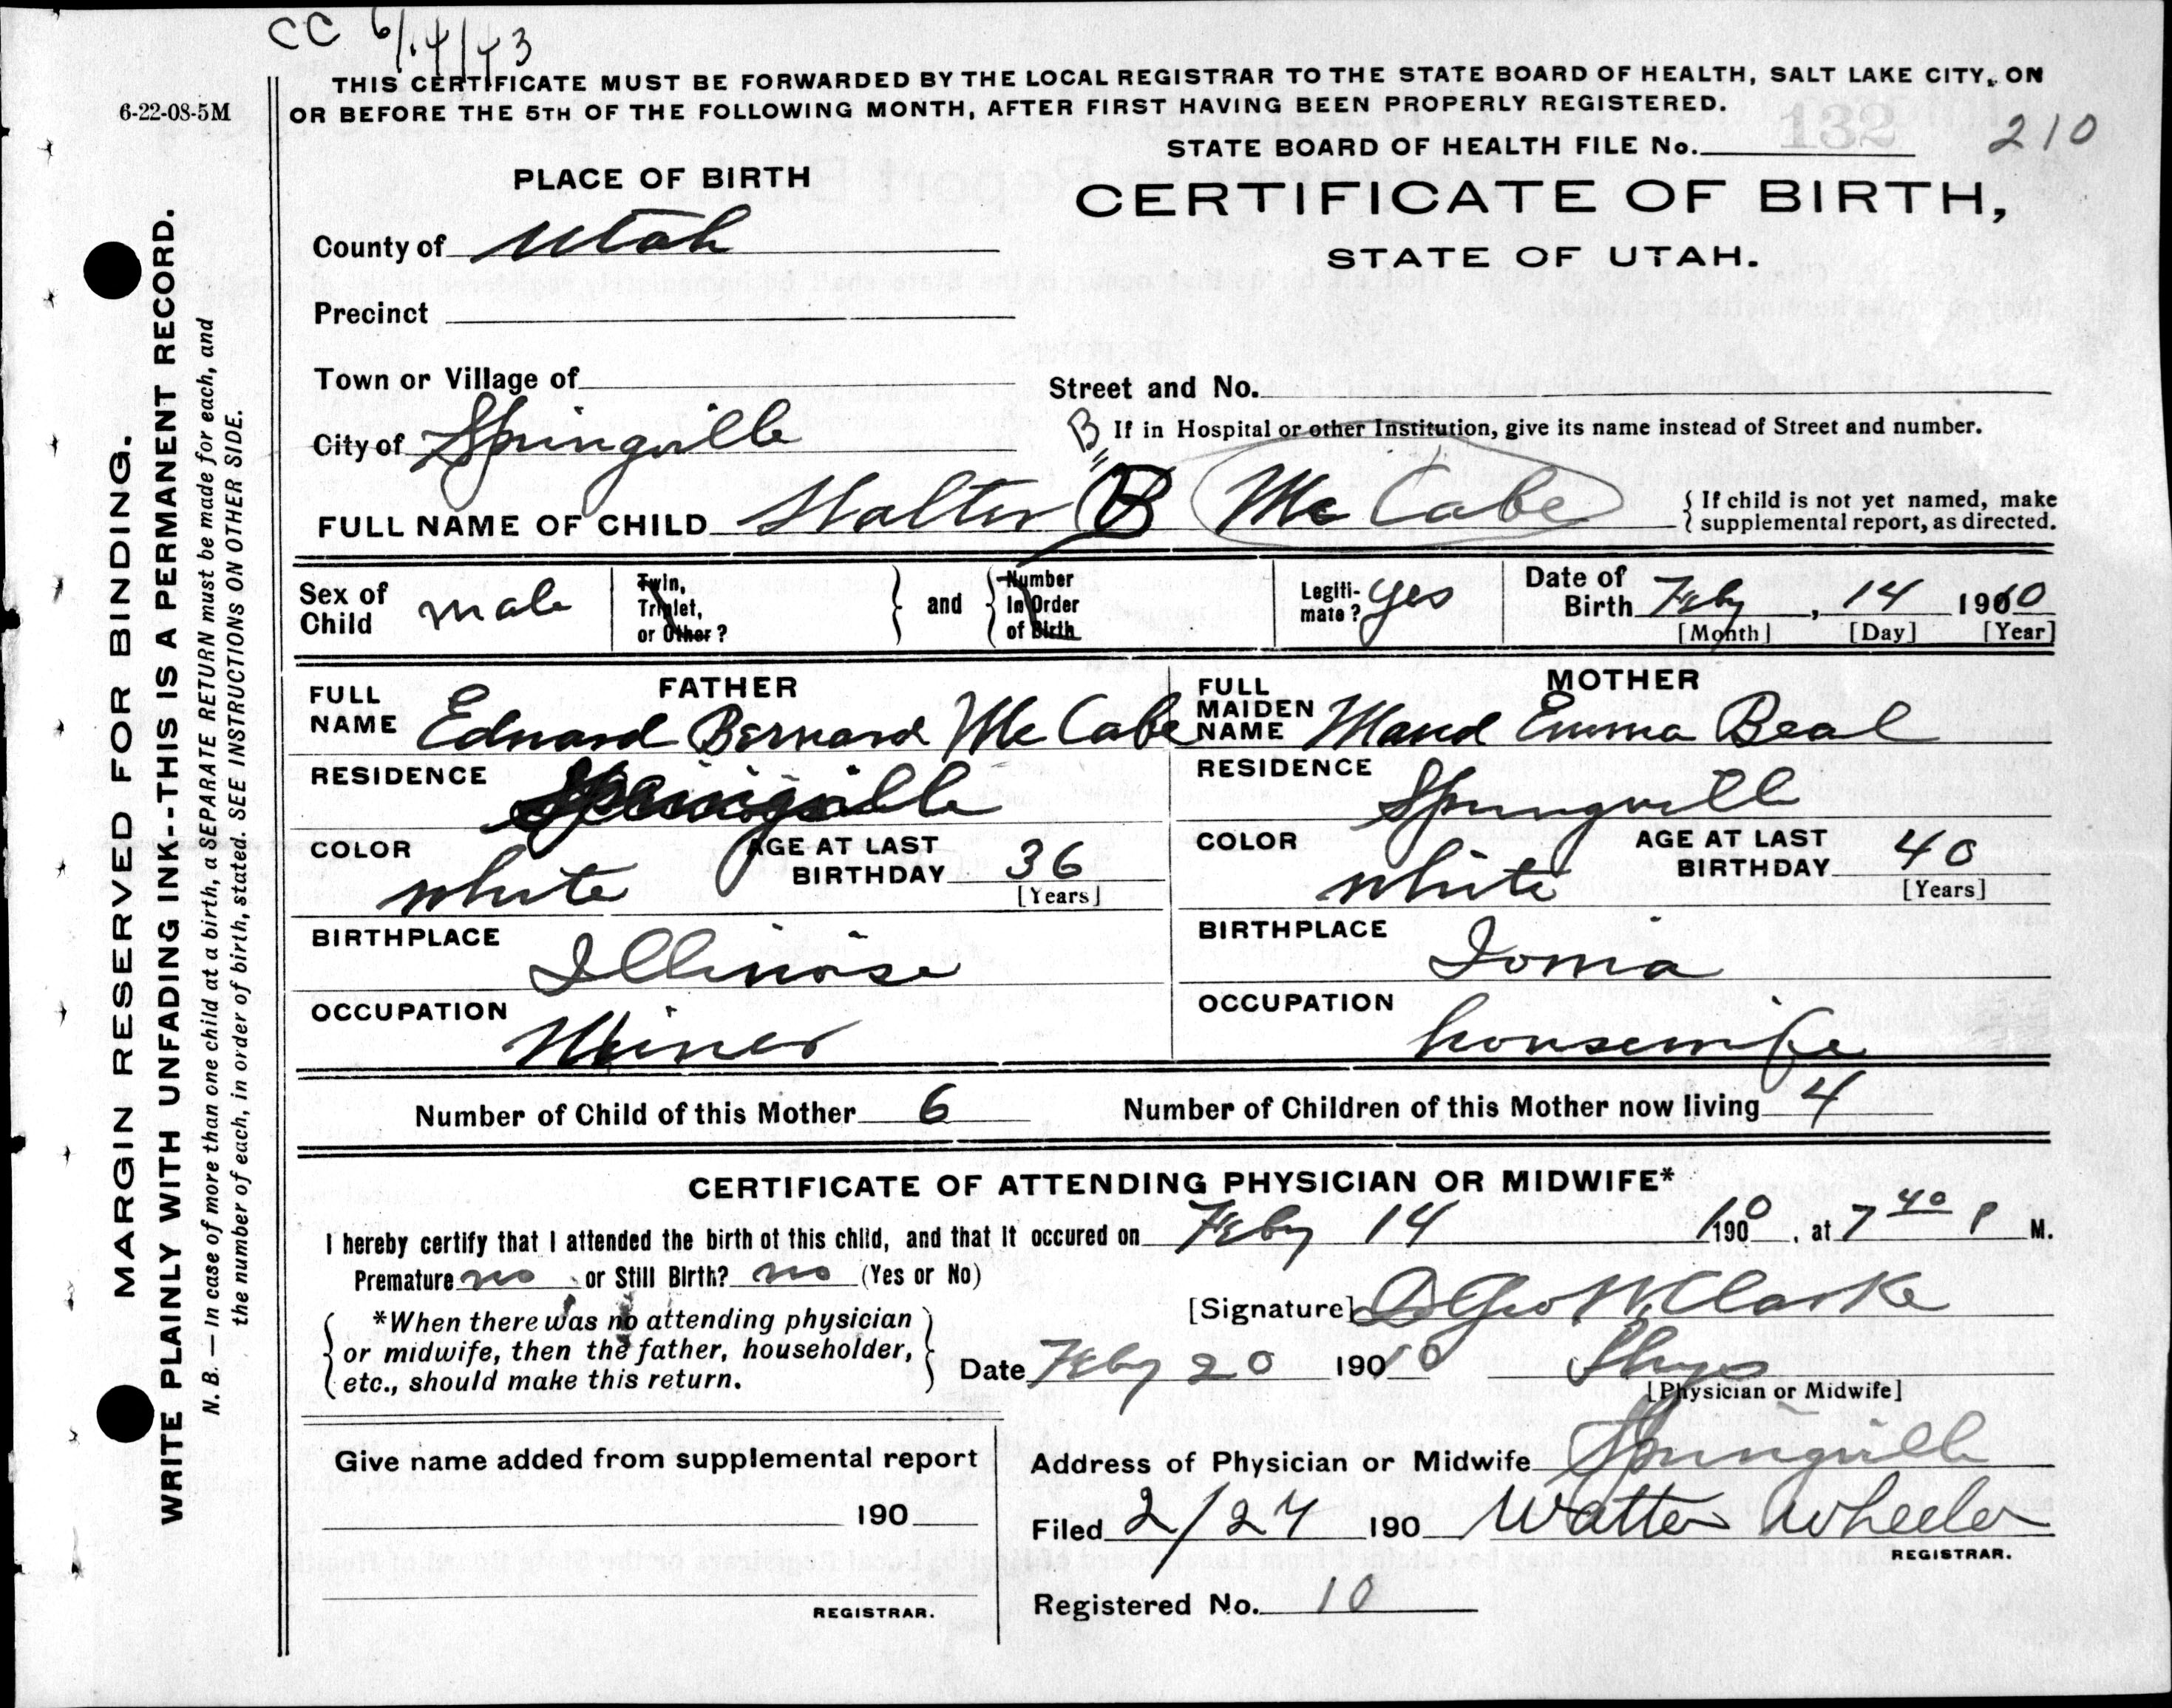 CC 6/14/43
THIS CERTIFICATE MUST BE FORWARDED BY THE LOCAL REGISTRAR TO THE STATE BOARD OF HEALTH, SALT LAKE CITY, ON
OR BEFORE THE 5TH OF THE FOLLOWING MONTH, AFTER FIRST HAVING BEEN PROPERLY REGISTERED.
6-22-08-5M
STATE BOARD OF HEALTH FILE No. 132 210
PLACE OF BIRTH
CERTIFICATE OF BIRTH,
STATE OF UTAH.
County of Utah
Precinct
Town or Village of
Street and No.
City of Springville
B If in Hospital or other Institution, give its name instead of Street and number.
FULL NAME OF CHILD Walter B McCabe
{ If child is not yet named, make
supplemental report, as directed.
Sex of Child male
Twin, Triplet, or Other?
and
Number In Order of Birth
Legiti-mate? yes
Date of Birth Feby, 14 1910
[Month] [Day] [Year]
FATHER
FULL NAME Edward Bernard McCabe
RESIDENCE Springville
COLOR white
AGE AT LAST BIRTHDAY 36
[Years]
BIRTHPLACE Illinoise
OCCUPATION Miner
MOTHER
FULL MAIDEN NAME Maud Emma Beal
RESIDENCE Springvill
COLOR white
AGE AT LAST BIRTHDAY 40
[Years]
BIRTHPLACE Iowa
OCCUPATION housewife
Number of Child of this Mother 6
Number of Children of this Mother now living 4
CERTIFICATE OF ATTENDING PHYSICIAN OR MIDWIFE*
I hereby certify that I attended the birth of this child, and that it occured on Feby 14 1910, at 7 40 P M.
Premature no or Still Birth? no (Yes or No)
*When there was no attending physician
or midwife, then the father, householder,
etc., should make this return.
[Signature] Geo W. Clarke
Date Feby 20 1910 Phys
[Physician or Midwife]
Give name added from supplemental report
190
REGISTRAR.
Address of Physician or Midwife Springville
Filed 2/24 190 Walter Wheeler
REGISTRAR.
Registered No. 10
MARGIN RESERVED FOR BINDING.
WRITE PLAINLY WITH UNFADING INK--THIS IS A PERMANENT RECORD.
N. B. — In case of more than one child at a birth, a SEPARATE RETURN must be made for each, and
the number of each, in order of birth, stated. SEE INSTRUCTIONS ON OTHER SIDE.